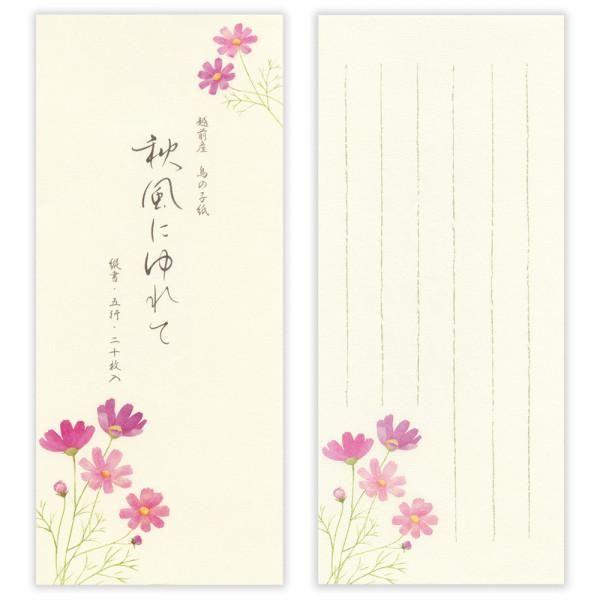 越前産 鳥の子紙
秋風にゆれて
縦書・五行・二十枚入